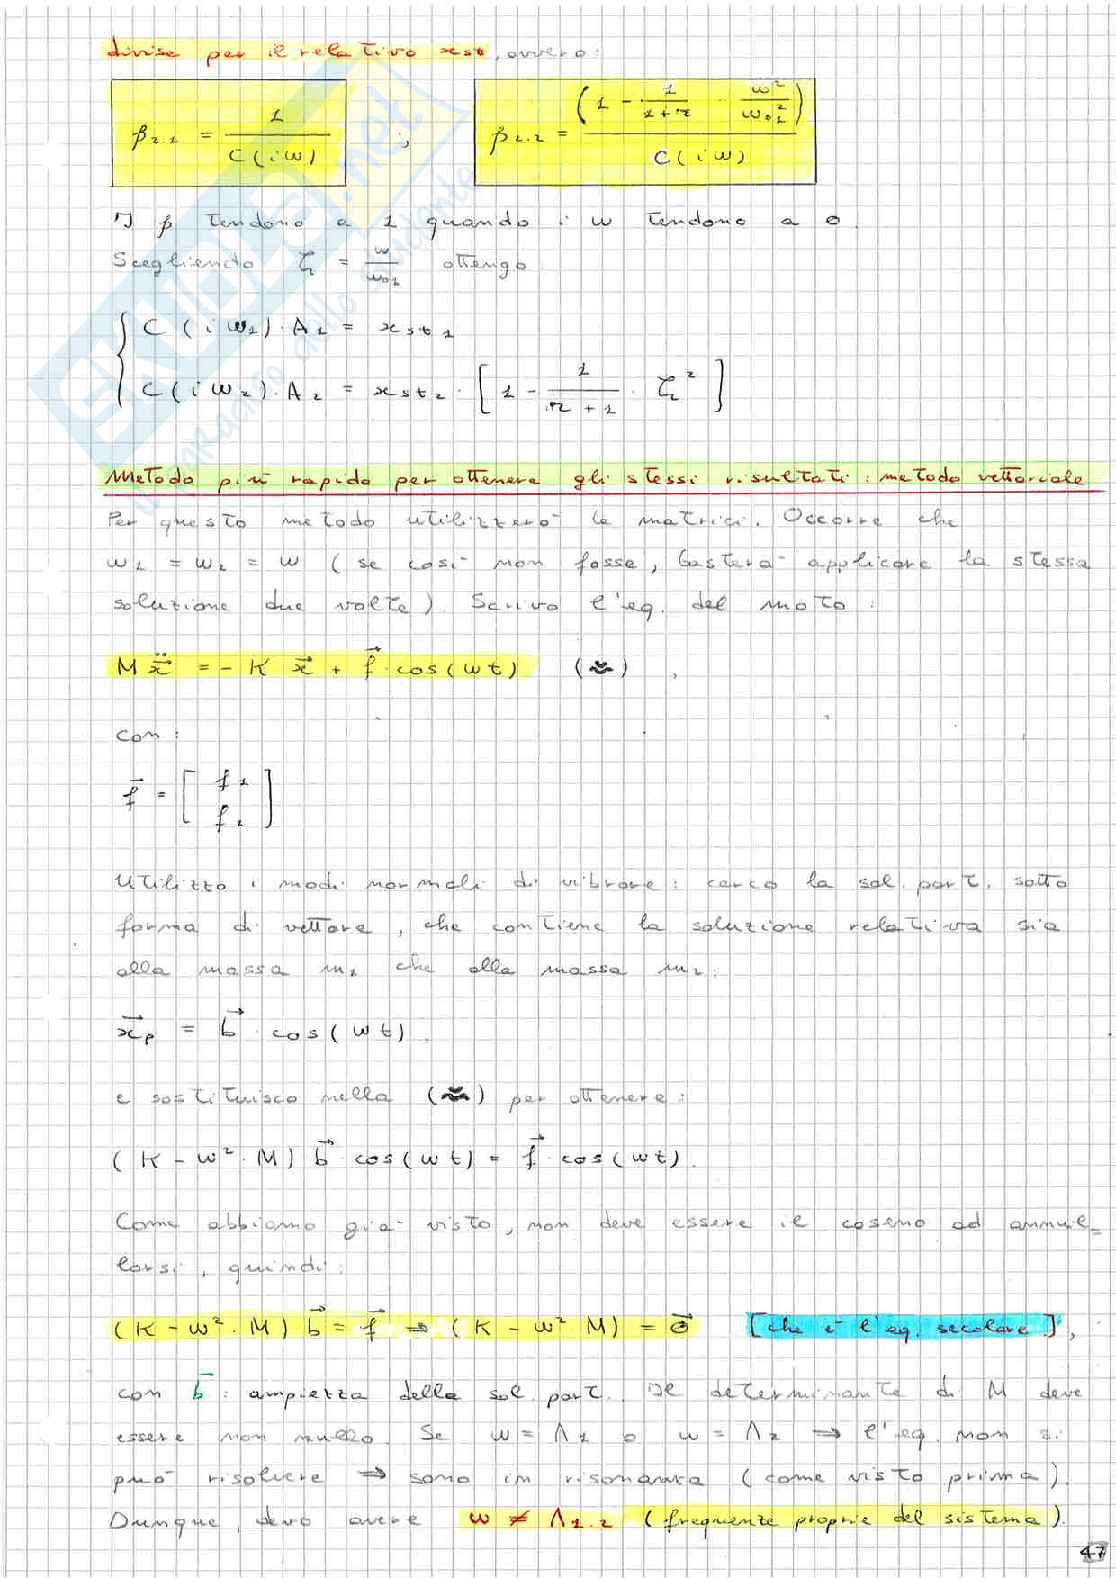 divisa per il relativo xst, ovvero:
β2.1 = 1 / C(iω) ; β2.2 = (1 - 1/(1+r) · ω²/ω01²) / C(iω)
I β tendono a 1 quando i ω tendono a 0.
Scegliendo ζ1 = ω/ω01 ottengo
{ C(iω1)·A1 = xst1
C(iω2)·A2 = xst2 · [1 - 1/(r+1) · ζ1²]
Metodo più rapido per ottenere gli stessi risultati: metodo vettoriale
Per questo metodo utilizzerò le matrici. Occorre che
ω1 = ω2 = ω (se così non fosse, basterà applicare la stessa
soluzione due volte). Scrivo l'eq. del moto:
M ẍ⃗ = - K x⃗ + f⃗ · cos(ωt) (≈) ,
con:
f⃗ = [ f1
f2 ]
Utilizzo i modi normali di vibrare: cerco la sol. part. sotto
forma di vettore, che contiene la soluzione relativa sia
alla massa m1 che alla massa m2:
x⃗p = b⃗ · cos(ωt).
e sostituisco nella (≈) per ottenere:
(K - ω² · M) b⃗ cos(ωt) = f⃗ · cos(ωt).
Come abbiamo già visto, non deve essere il coseno ad annul-
larsi, quindi:
(K - ω² · M) b⃗ = f⃗ ⇒ (K - ω² M) = 0⃗ [che è l'eq. secolare],
con b⃗ : ampiezza della sol. part. Il determinante di M deve
essere non nullo. Se ω = Λ1 o ω = Λ2 ⇒ l'eq. non si
può risolvere ⇒ sono in risonanza (come visto prima).
Dunque, devo avere ω ≠ Λ1.2 (frequenze proprie del sistema).
47
SKUOLA.net